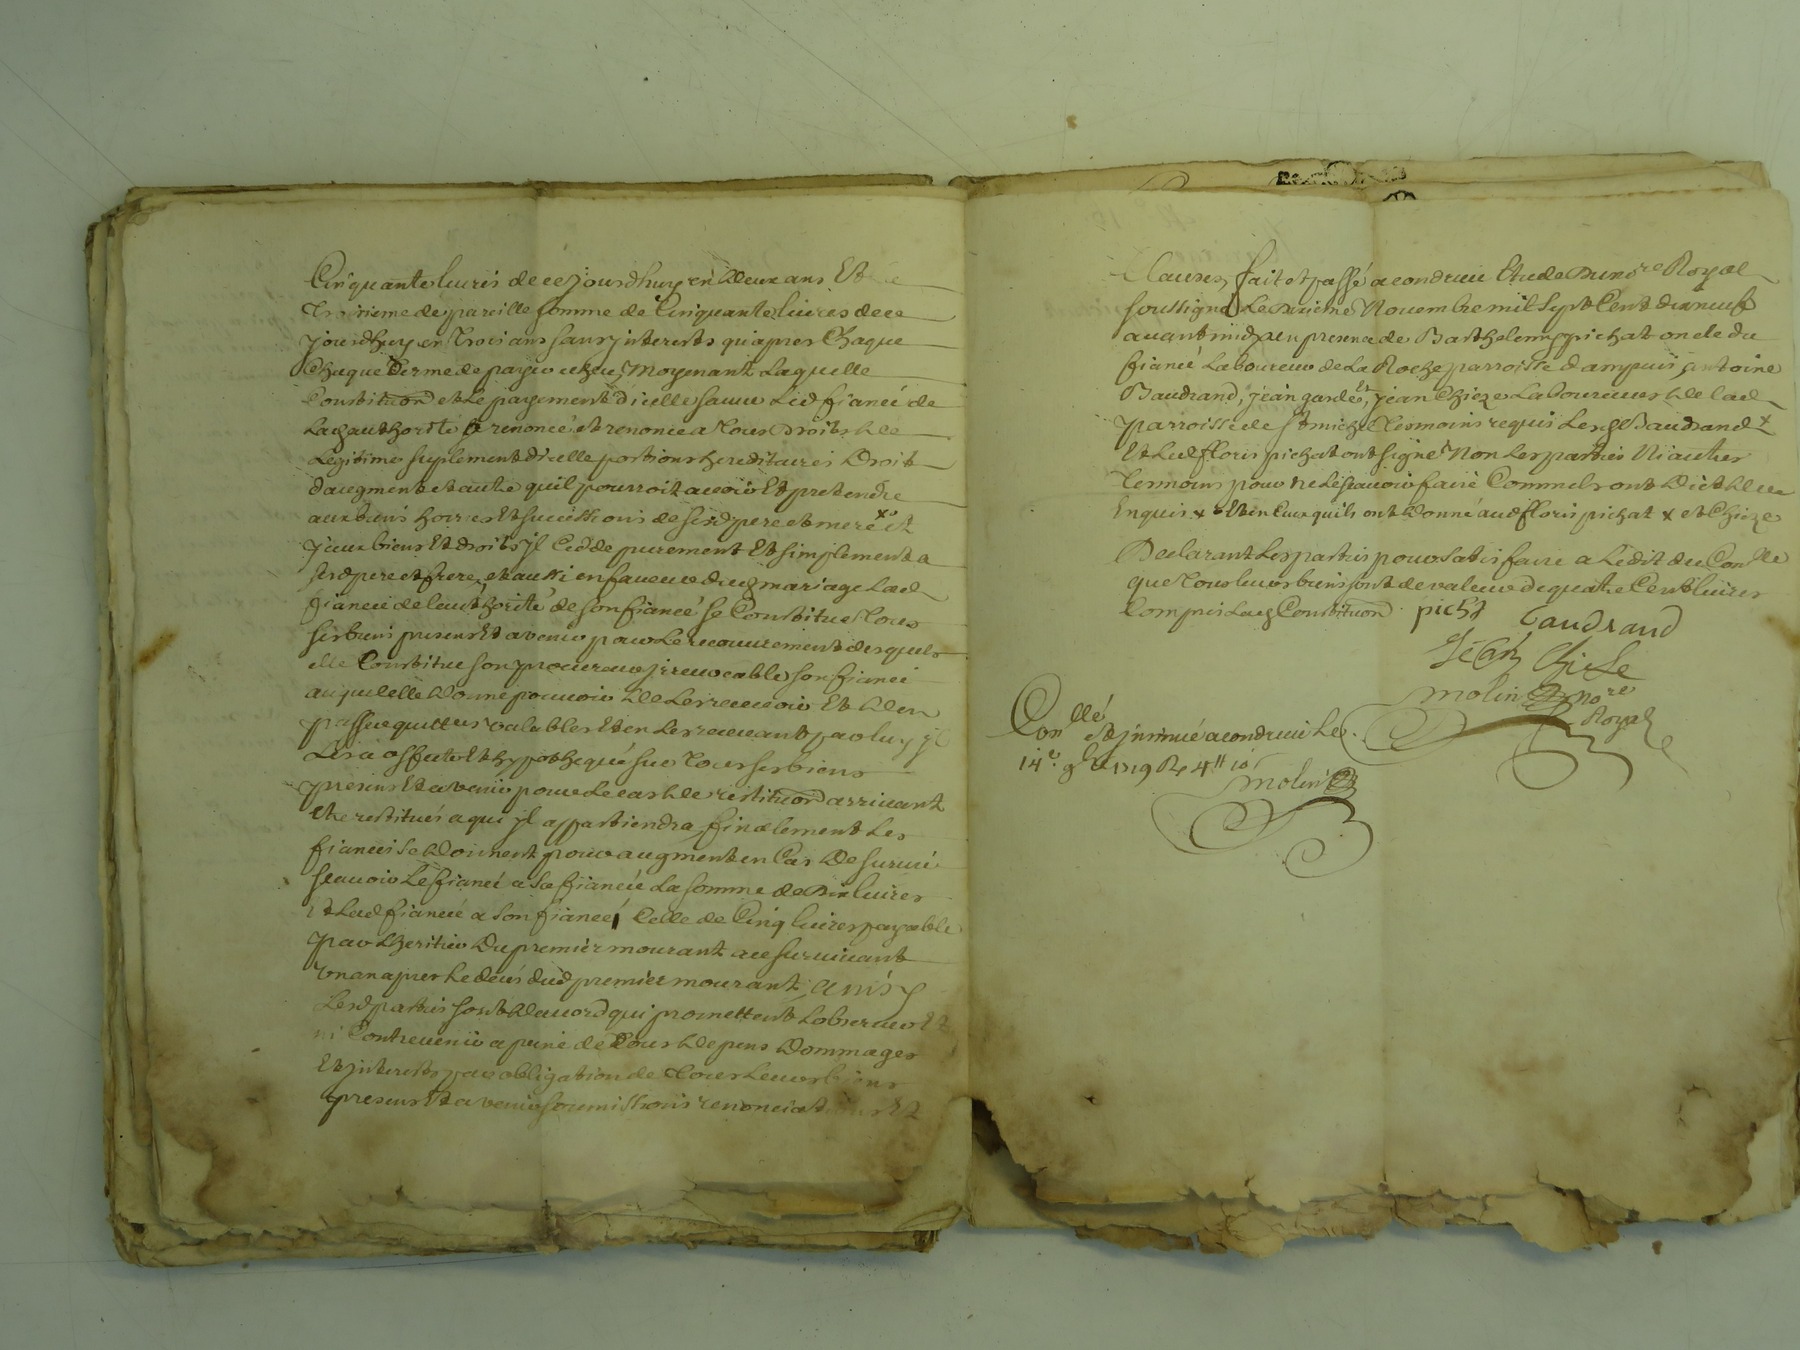 Cinquante liures de ce jourdhuy en deux ans Et le
Troisieme de pareille somme de Cinquante liures de ce
jourdhuy en Trois ans sans jnterests qu'apres Chaque
Chaque Terme de payer echeu, Moyenant Laquelle
Constituon et Le payement d'icelle sauue Led fiancé de
Lad authorité renoncé et renonce a Tous Droits de
Legitime suplement d'icelle portions hereditaires Droit
d'augment et autre quil pourroit auoir Et pretendre
aux biens hoiries Et successions de sesd pere et mere x Et
jceux biens Et droits jl Cedde purement Et simplement a
sesd pere et frere, et aussi en faueur dud mariage Lad
fiancée de l'authorité de son fiancé se Constitue Tous
ses biens presens Et a venir pour Le recouurement desquels
elle Constitue son procureur jrreuocable son fiancé
auquel elle donne pouuoir de Les receuoir Et d'en
passer quittes valables Et en Les receuant par luy jl
Les a affecte Et hypotheque sur Tous ses biens
presens Et a venir pour Le cas de restituon arriuant
Etre restitués a qui jl appartiendra, finalement Les
fiancés se donnent pour augment en Cas De suruie
scauoir Le fiancé a sa fiancée La somme de Dix liures
Et Lad fiancée a son fiancé Celle de Cinq liures payable
par L'heritier Du premier mourant au suruiuant
vn an apres Le deces dud premier mourant, ainsy
Lesd parties sont d'acord qui promettent L'obseruer Et
ni Contreuenir a peine de Tous depens Dommages
Et jnterests par obligation de Tous Leurs biens
presens Et a venir soumissions renonciations Et
Clauses, fait et passé a condrieu Etude Du nore Royal
soussigné Le Dixieme Nouembre mil sept Cent dix neuf
auant midy en presence de Barthelemy pichat oncle du
fiancé Laboureur de La Roche parroisse d'ampuis, antoine
Baudrand, jean garde, Et jean Chieze Laboureurs de lad
parroisse de St michel Tesmoins requis Lesd Baudrand x
Et Led floris pichat ont signé Non Les parties Ni autres
Tesmoins pour ne Le scauoir faire Comme Ils ont Dit De ce
Enquis x Et en Ceux quils ont donné aud floris pichat x et Chieze
Declarant Les parties pour satisfaire a L'edit du Conlle
que Tous leurs biens sont de valeur de quatre Cent liures
Compris Lad Constituon pichat Baudrand
jean chiese
molin nore
Royal
Conllé et jnsinué a condrieu Le
14e 9bre 1719 R 4# 10s
molin